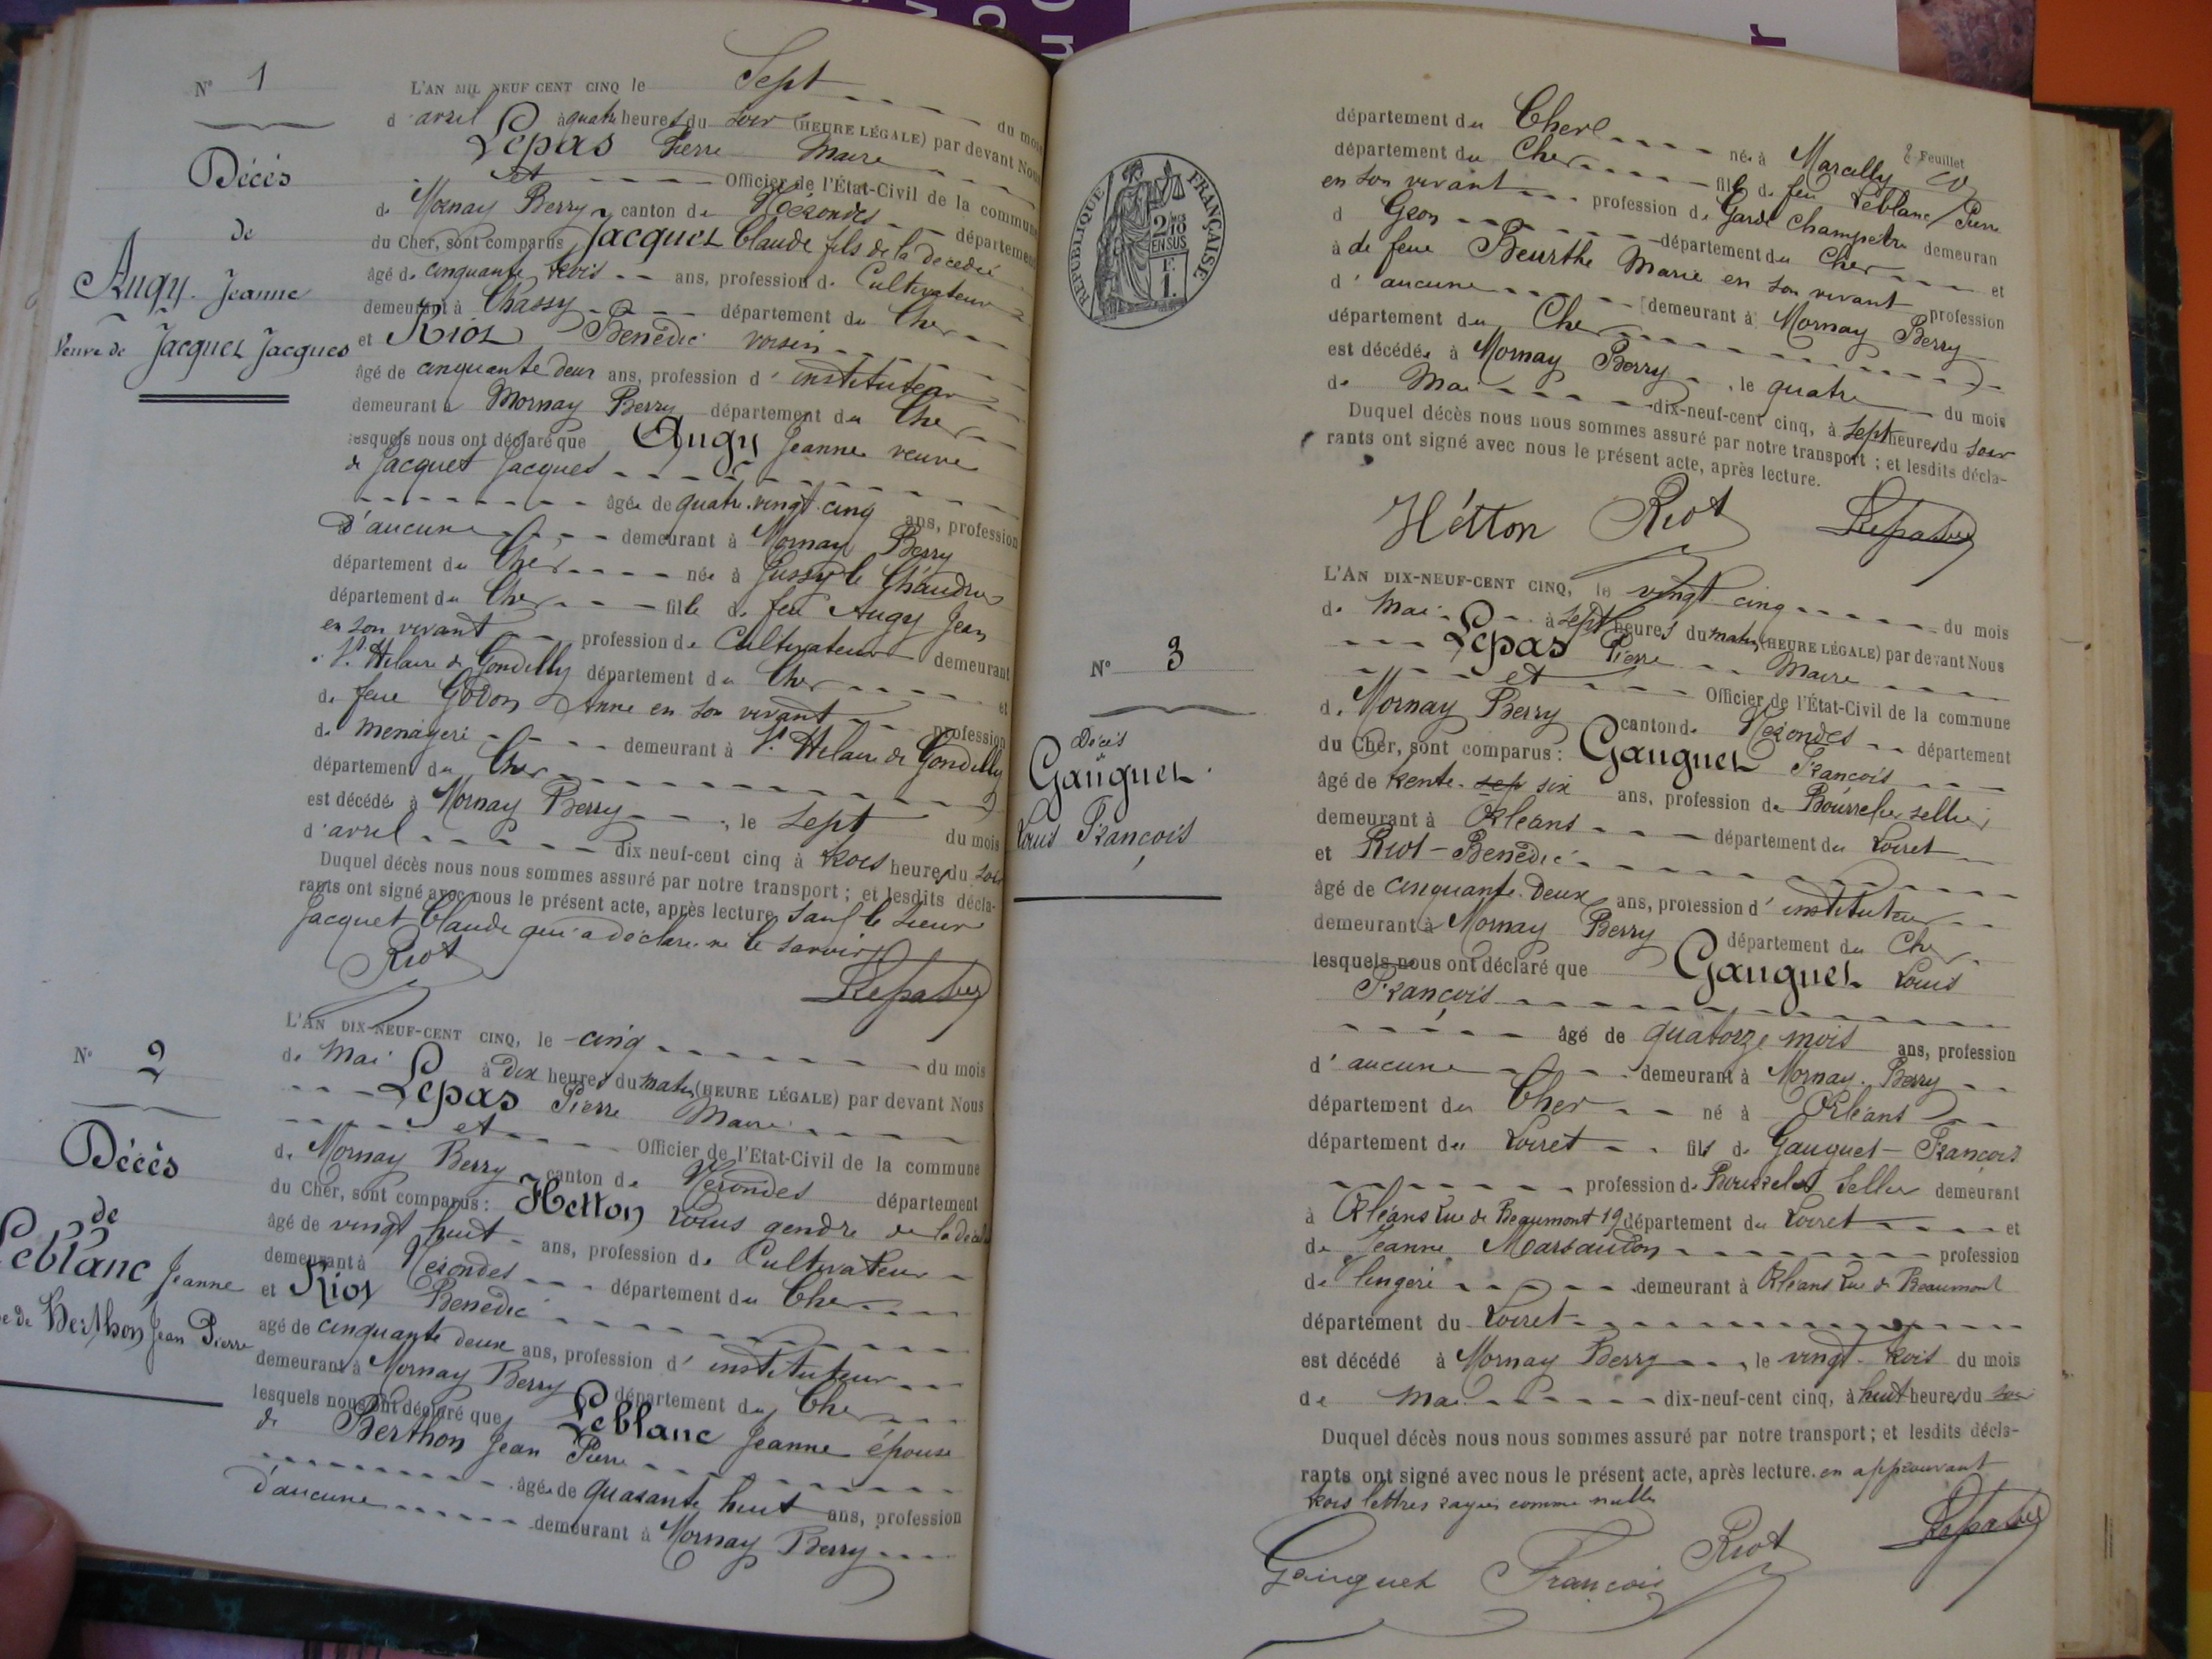 N° 1
Décès
de
Augy Jeanne
Veuve de Jacquet Jacques
L'AN MIL NEUF CENT CINQ le Sept du mois
d'avril à quatre heures du soir (HEURE LÉGALE) par devant Nous
Lepas Pierre Maire
et Officier de l'État-Civil de la commune
de Mornay Berry canton de Nérondes département
du Cher, sont comparus Jacquet Claude fils de la décédée
âgé de cinquante trois ans, profession de Cultivateur
demeurant à Chassy département du Cher
et Riot Bénédic voisin
âgé de cinquante deux ans, profession d'instituteur
demeurant à Mornay Berry département du Cher
lesquels nous ont déclaré que Augy Jeanne veuve
de Jacquet Jacques
âgée de quatre-vingt-cinq ans, profession
d'aucune demeurant à Mornay Berry
département du Cher née à Jussy le Chaudrier
département du Cher fille de feu Augy Jean
en son vivant profession de Cultivateur demeurant
à St Hilaire de Gondilly département du Cher et
de feue Godon Anne en son vivant profession
de ménagère demeurant à St Hilaire de Gondilly
département du Cher
est décédée à Mornay Berry, le Sept du mois
d'avril dix neuf-cent cinq à trois heures du soir
Duquel décès nous nous sommes assuré par notre transport ; et lesdits décla-
rants ont signé avec nous le présent acte, après lecture sauf le sieur
Jacquet Claude qui a déclaré ne le savoir
Riot Lepas
N° 2
Décès
de
Leblanc Jeanne
de Berthon Jean Pierre
L'AN DIX-NEUF-CENT CINQ, le cinq du mois
de Mai à Dix heures du matin (HEURE LÉGALE) par devant Nous
Lepas Pierre Maire
et Officier de l'État-Civil de la commune
de Mornay Berry canton de Nérondes département
du Cher, sont comparus : Hetton Louis gendre de la décédée
âgé de vingt huit ans, profession de Cultivateur
demeurant à Nérondes département du Cher
et Riot Bénédic
âgé de cinquante deux ans, profession d'instituteur
demeurant à Mornay Berry département du Cher
lesquels nous ont déclaré que Leblanc Jeanne épouse
de Berthon Jean Pierre
âgée de quarante huit ans, profession
d'aucune demeurant à Mornay Berry
2 Feuillet
département du Cher née à Marcilly
département du Cher fille de feu Leblanc Pierre
en son vivant profession de Garde Champêtre demeurant
à Gron département du Cher et
de feue Beurthe Marie en son vivant profession
d'aucune demeurant à Mornay Berry
département du Cher
est décédée à Mornay Berry, le quatre du mois
de Mai dix-neuf-cent cinq, à Sept heures du soir
Duquel décès nous nous sommes assuré par notre transport ; et lesdits décla-
rants ont signé avec nous le présent acte, après lecture.
Hétton Riot Lepas
RÉPUBLIQUE FRANÇAISE
2/10
EN SUS
F.
1.
N° 3
Décès
de
Gauguet
Louis François
L'AN DIX-NEUF-CENT CINQ, le vingt cinq du mois
de Mai à sept heures du matin (HEURE LÉGALE) par devant Nous
Lepas Pierre Maire
et Officier de l'État-Civil de la commune
de Mornay Berry canton de Nérondes département
du Cher, sont comparus : Gauguet François
âgé de trente-sep six ans, profession de Bourrelier sellier
demeurant à Orléans département du Loiret
et Riot-Bénédic
âgé de cinquante-Deux ans, profession d'instituteur
demeurant à Mornay Berry département du Cher
lesquels nous ont déclaré que Gauguet Louis
François
âgé de quatorze mois ans, profession
d'aucune demeurant à Mornay-Berry
département du Cher né à Orléans
département du Loiret fils de Gauguet-François
profession de Bourrelier Sellier demeurant
à Orléans Rue de Beaumont 19 département du Loiret et
de Jeanne Marsaudon profession
de lingère demeurant à Orléans Rue de Beaumont
département du Loiret
est décédé à Mornay Berry, le vingt-trois du mois
de Mai dix-neuf-cent cinq, à huit heures du soir
Duquel décès nous nous sommes assuré par notre transport ; et lesdits décla-
rants ont signé avec nous le présent acte, après lecture. en approuvant
trois lettres rayées comme nulles
Gauguet François Riot Lepas